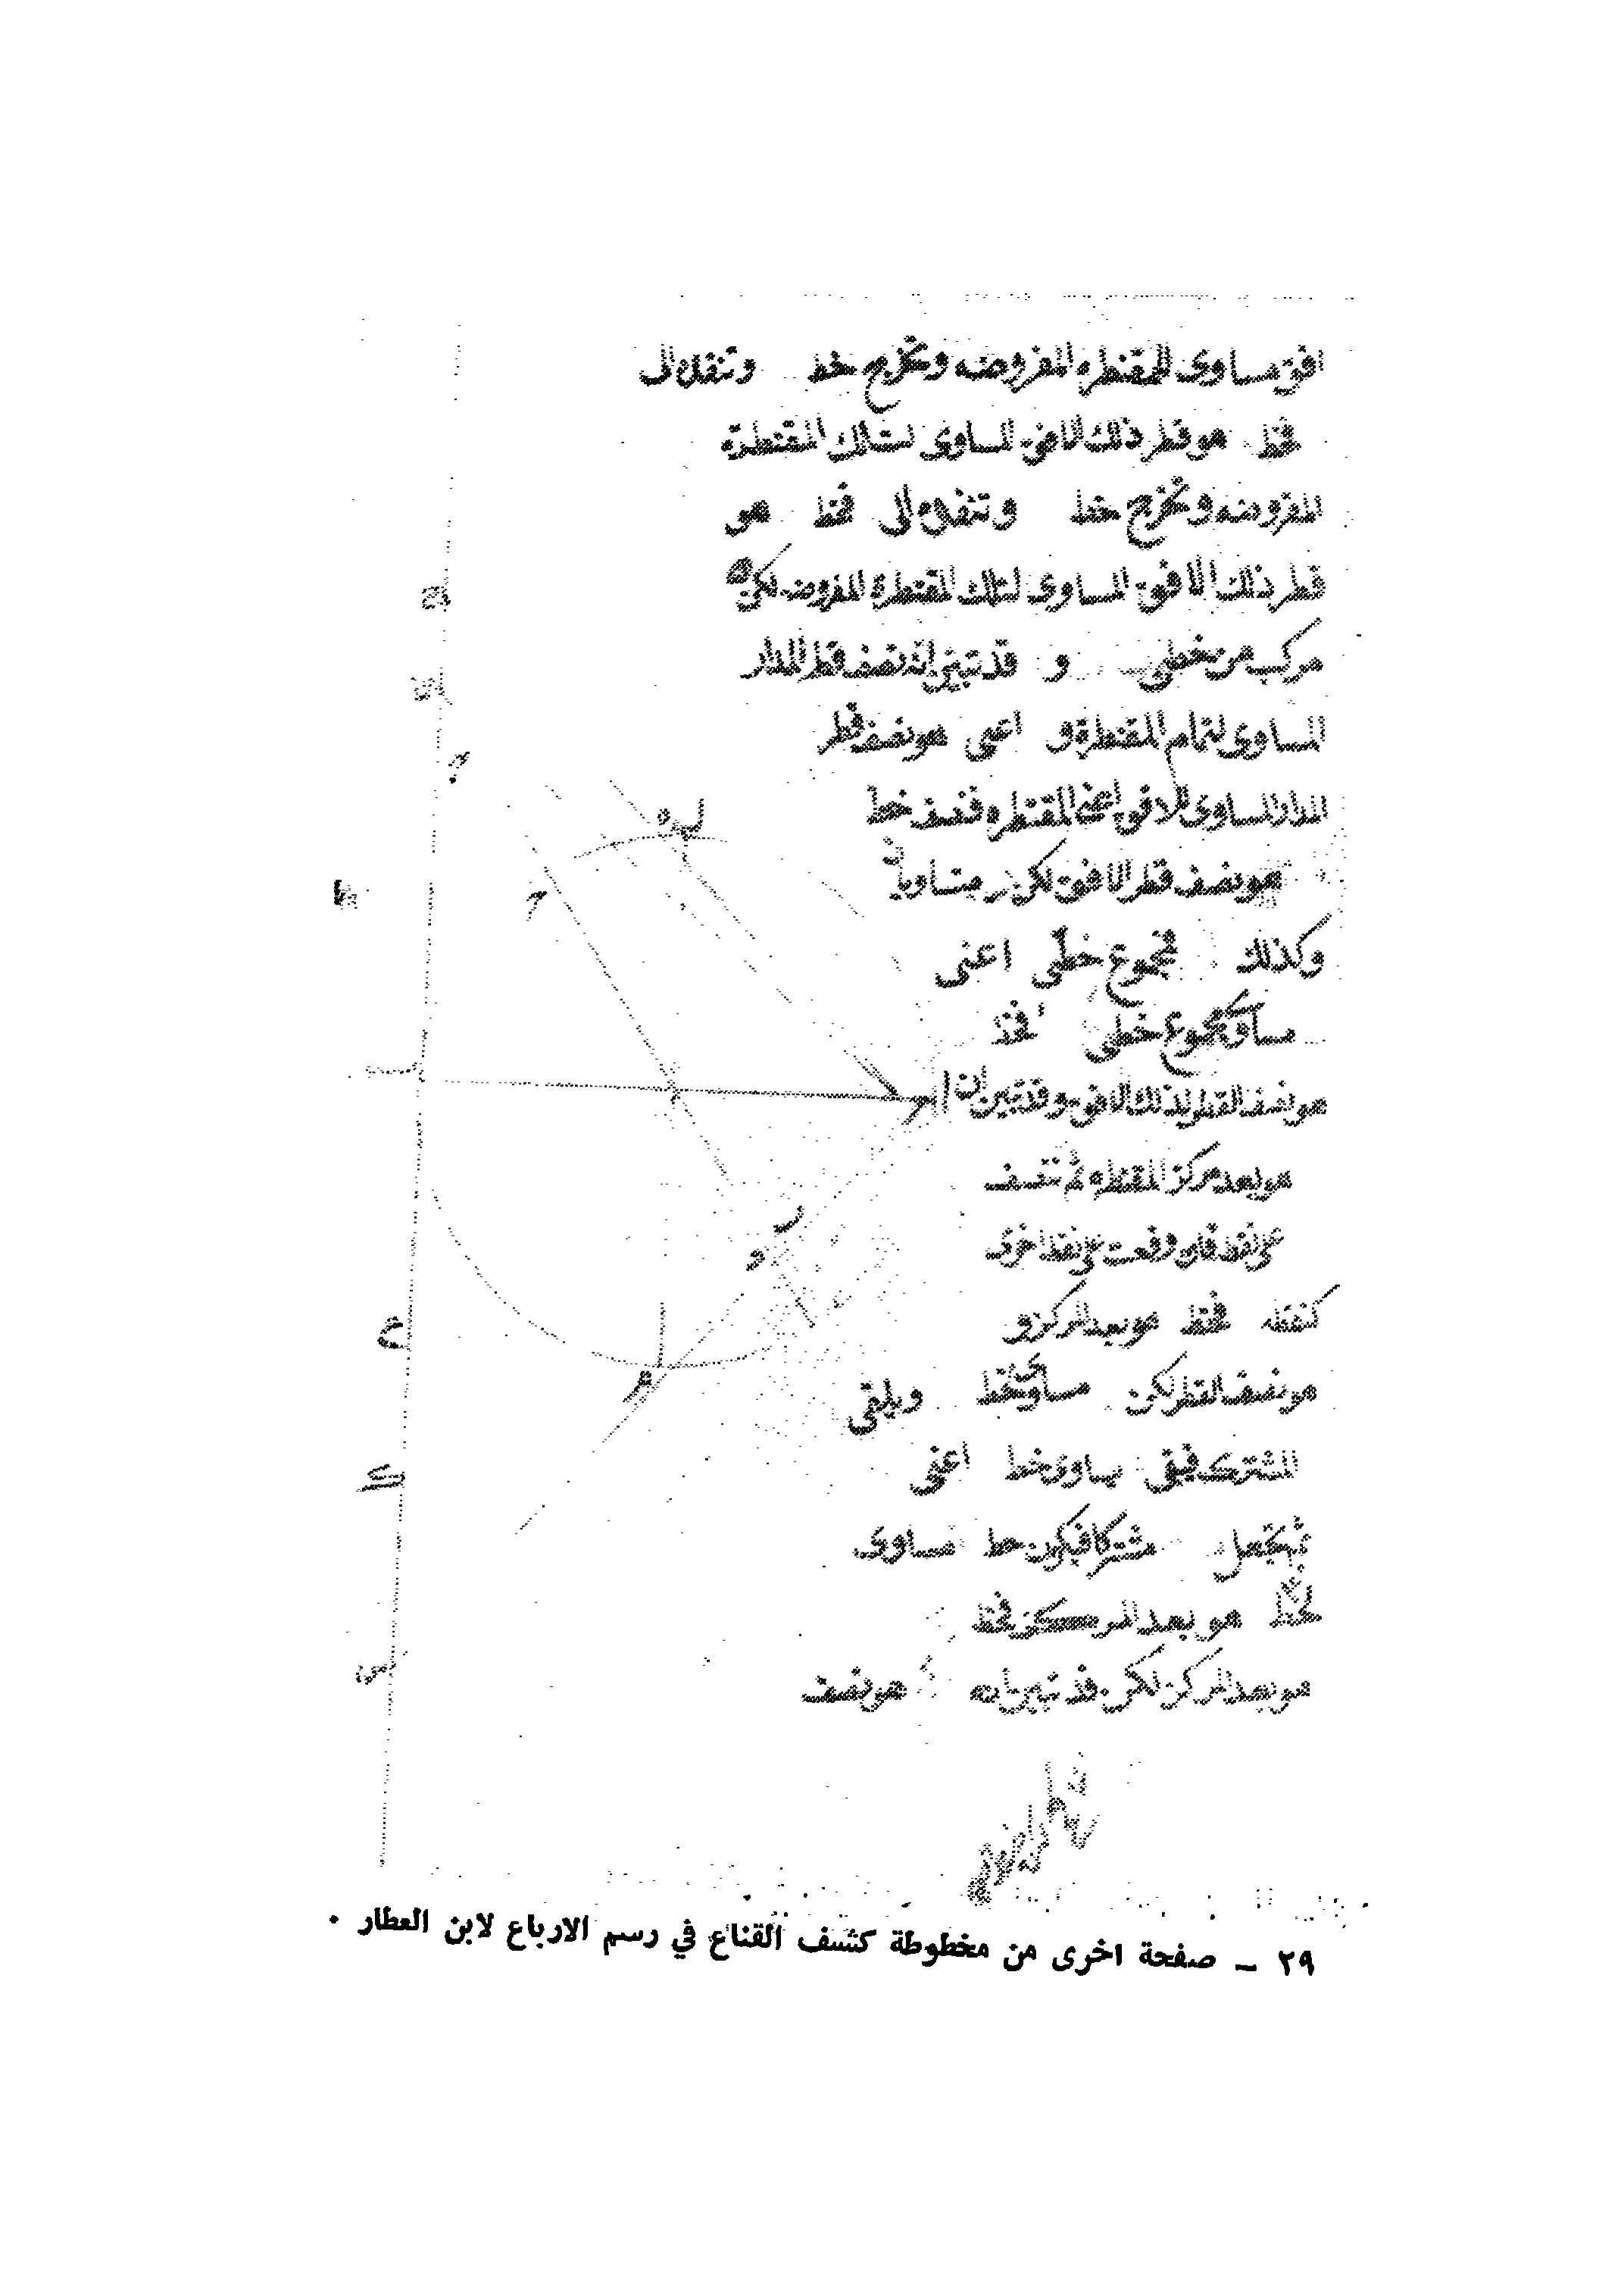 افق مساوى للمقنطره المفروضه ونخرج خط وتنفذ الى
فخط هو قطر ذلك الافق المساوى لتلك المقنطرة
المفروضه ونخرج خط وتنفذ الى فخط هو
قطر ذلك الافق المساوى لتلك المقنطرة المفروضه لكن
مركب من خطى و قد تبين انه نصف قطر المدار
المساوى لتمام المقنطرة و اعنى هو نصف قطر
المدار المساوى للافق اعنى المقنطره فنصف خط
هو نصف قطر الافق لكن متساويان
وكذلك فمجموع خطى اعنى
مساو لمجموع خطى فخط
هو نصف القطر لذلك الافق وقد تبين ان
هو بعد مركز المقنطره ثم تنصف
على نقطه فان وقعت على نقطه اخرى
كنقطه فخط هو بعد المركز و
هو نصف القطر لكن مساو لخط ويلقى
المشترك فيبقى يساوى خط اعنى
ثم نجعل مشتركا فيكون خط مساوى
لخط هو بعد المركز فخط
هو بعد المركز لكن قد تبين انه هو نصف
ع
ك
س
٢٩ – صفحة اخرى من مخطوطة كشف القناع في رسم الارباع لابن العطار .